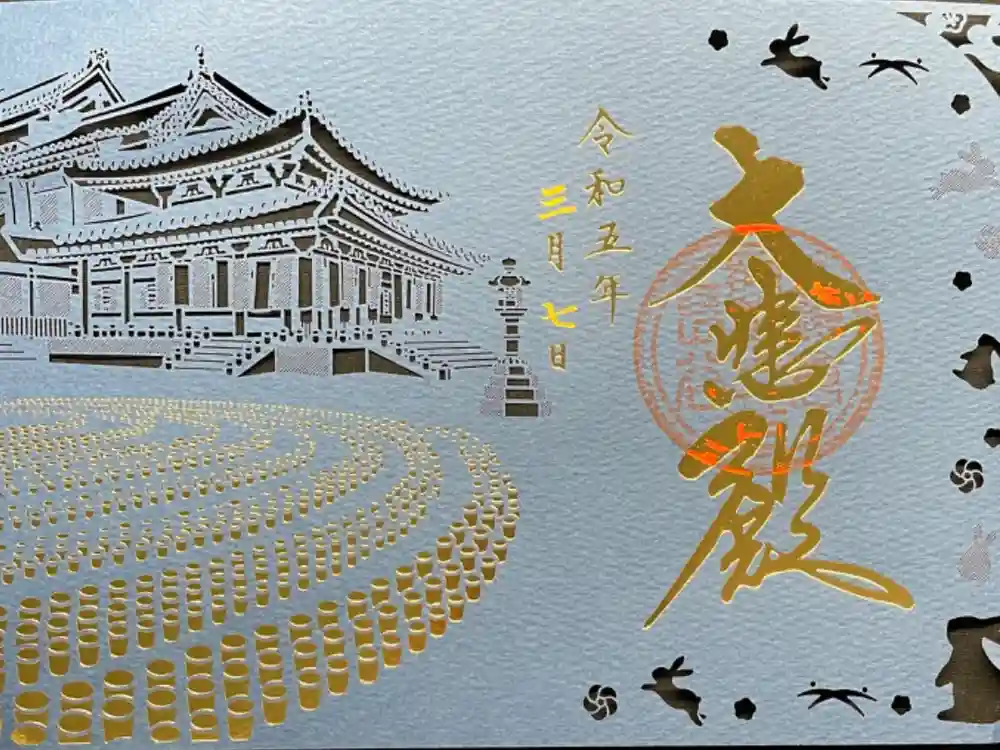 大悲殿
令和五年
三月七日